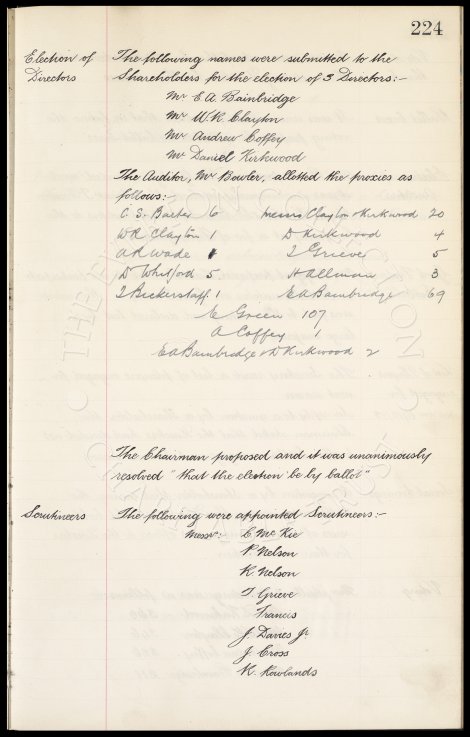 224
Election of
Directors
The following names were submitted to the
Shareholders for the election of 3 Directors:-
Mr E A Bainbridge
Mr W. R. Clayton
Mr Andrew Coffey
Mr Daniel Kirkwood
The Auditor, Mr Bowler, allotted the proxies as
follows:-
C. S. Baxter 6 Messrs Clayton & Kirkwood 20
W R Clayton 1 D Kirkwood 4
A R Wade 5
D Whitford 5 H Allman 3
Bickerstaff 1 E A Bainbridge 69
E Green 107
A Coffey 1
E A Bainbridge & D Kirkwood 2
The Chairman proposed and it was unanimously
resolved "that the election be by ballot"
Scrutineers
The following were appointed Scrutineers:-
Messrs: C. Mc Kie
P. Nelson
R. Nelson
T. Grieve
Francis
J. Davies Jr
J. Cross
R. Rowlands